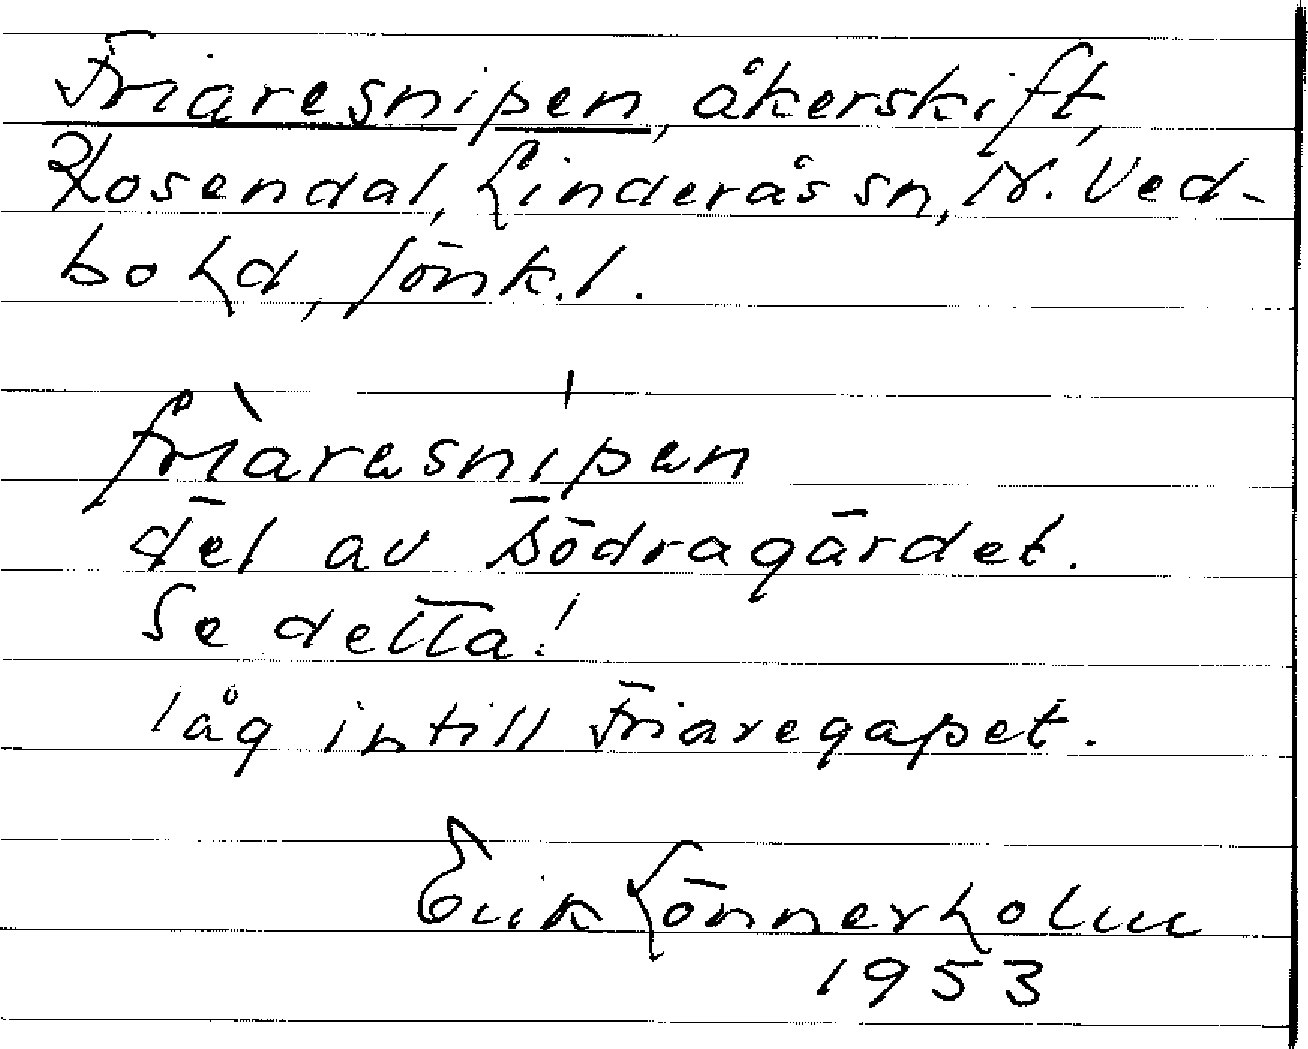 Friaresnipen, åkerskift,
Rosendal, Linderås sn, N. Ved-
bo hd, Jönk. l.
frìaresnípen
del av Södragärdet.
Se detta!
låg intill Friaregapet.
Erik Lönnerholm
1953